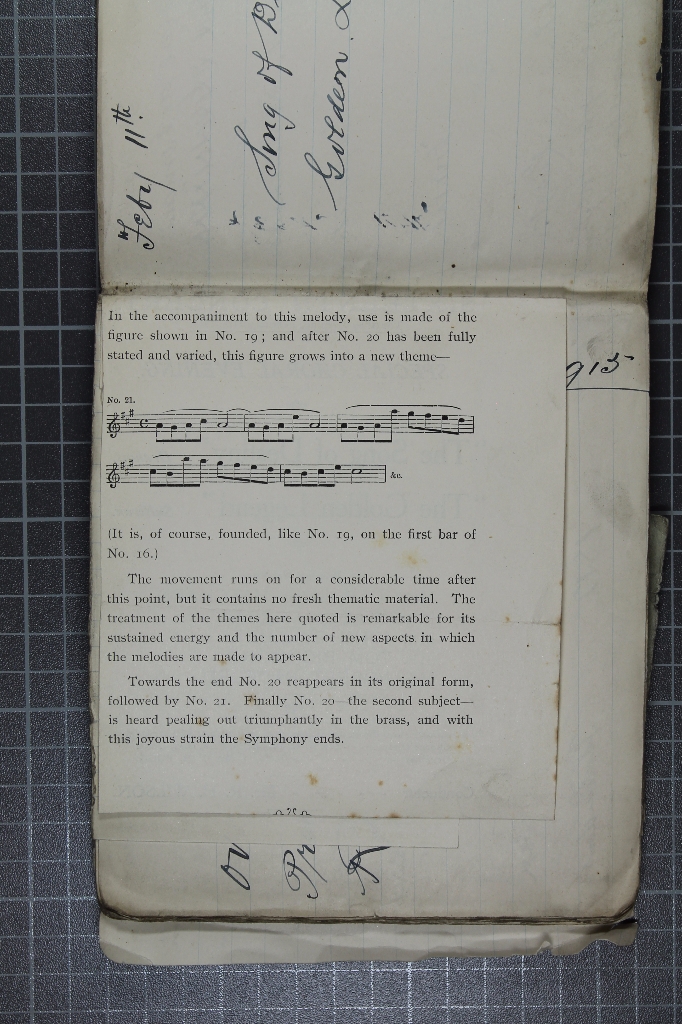 Feby 11th
Song of
Golden
915
In the accompaniment to this melody, use is made of the
figure shown in No. 19; and after No. 20 has been fully
stated and varied, this figure grows into a new theme—
No. 21.
&c.
(It is, of course, founded, like No. 19, on the first bar of
No. 16.)
The movement runs on for a considerable time after
this point, but it contains no fresh thematic material. The
treatment of the themes here quoted is remarkable for its
sustained energy and the number of new aspects in which
the melodies are made to appear.
Towards the end No. 20 reappears in its original form,
followed by No. 21. Finally No. 20—the second subject—
is heard pealing out triumphantly in the brass, and with
this joyous strain the Symphony ends.